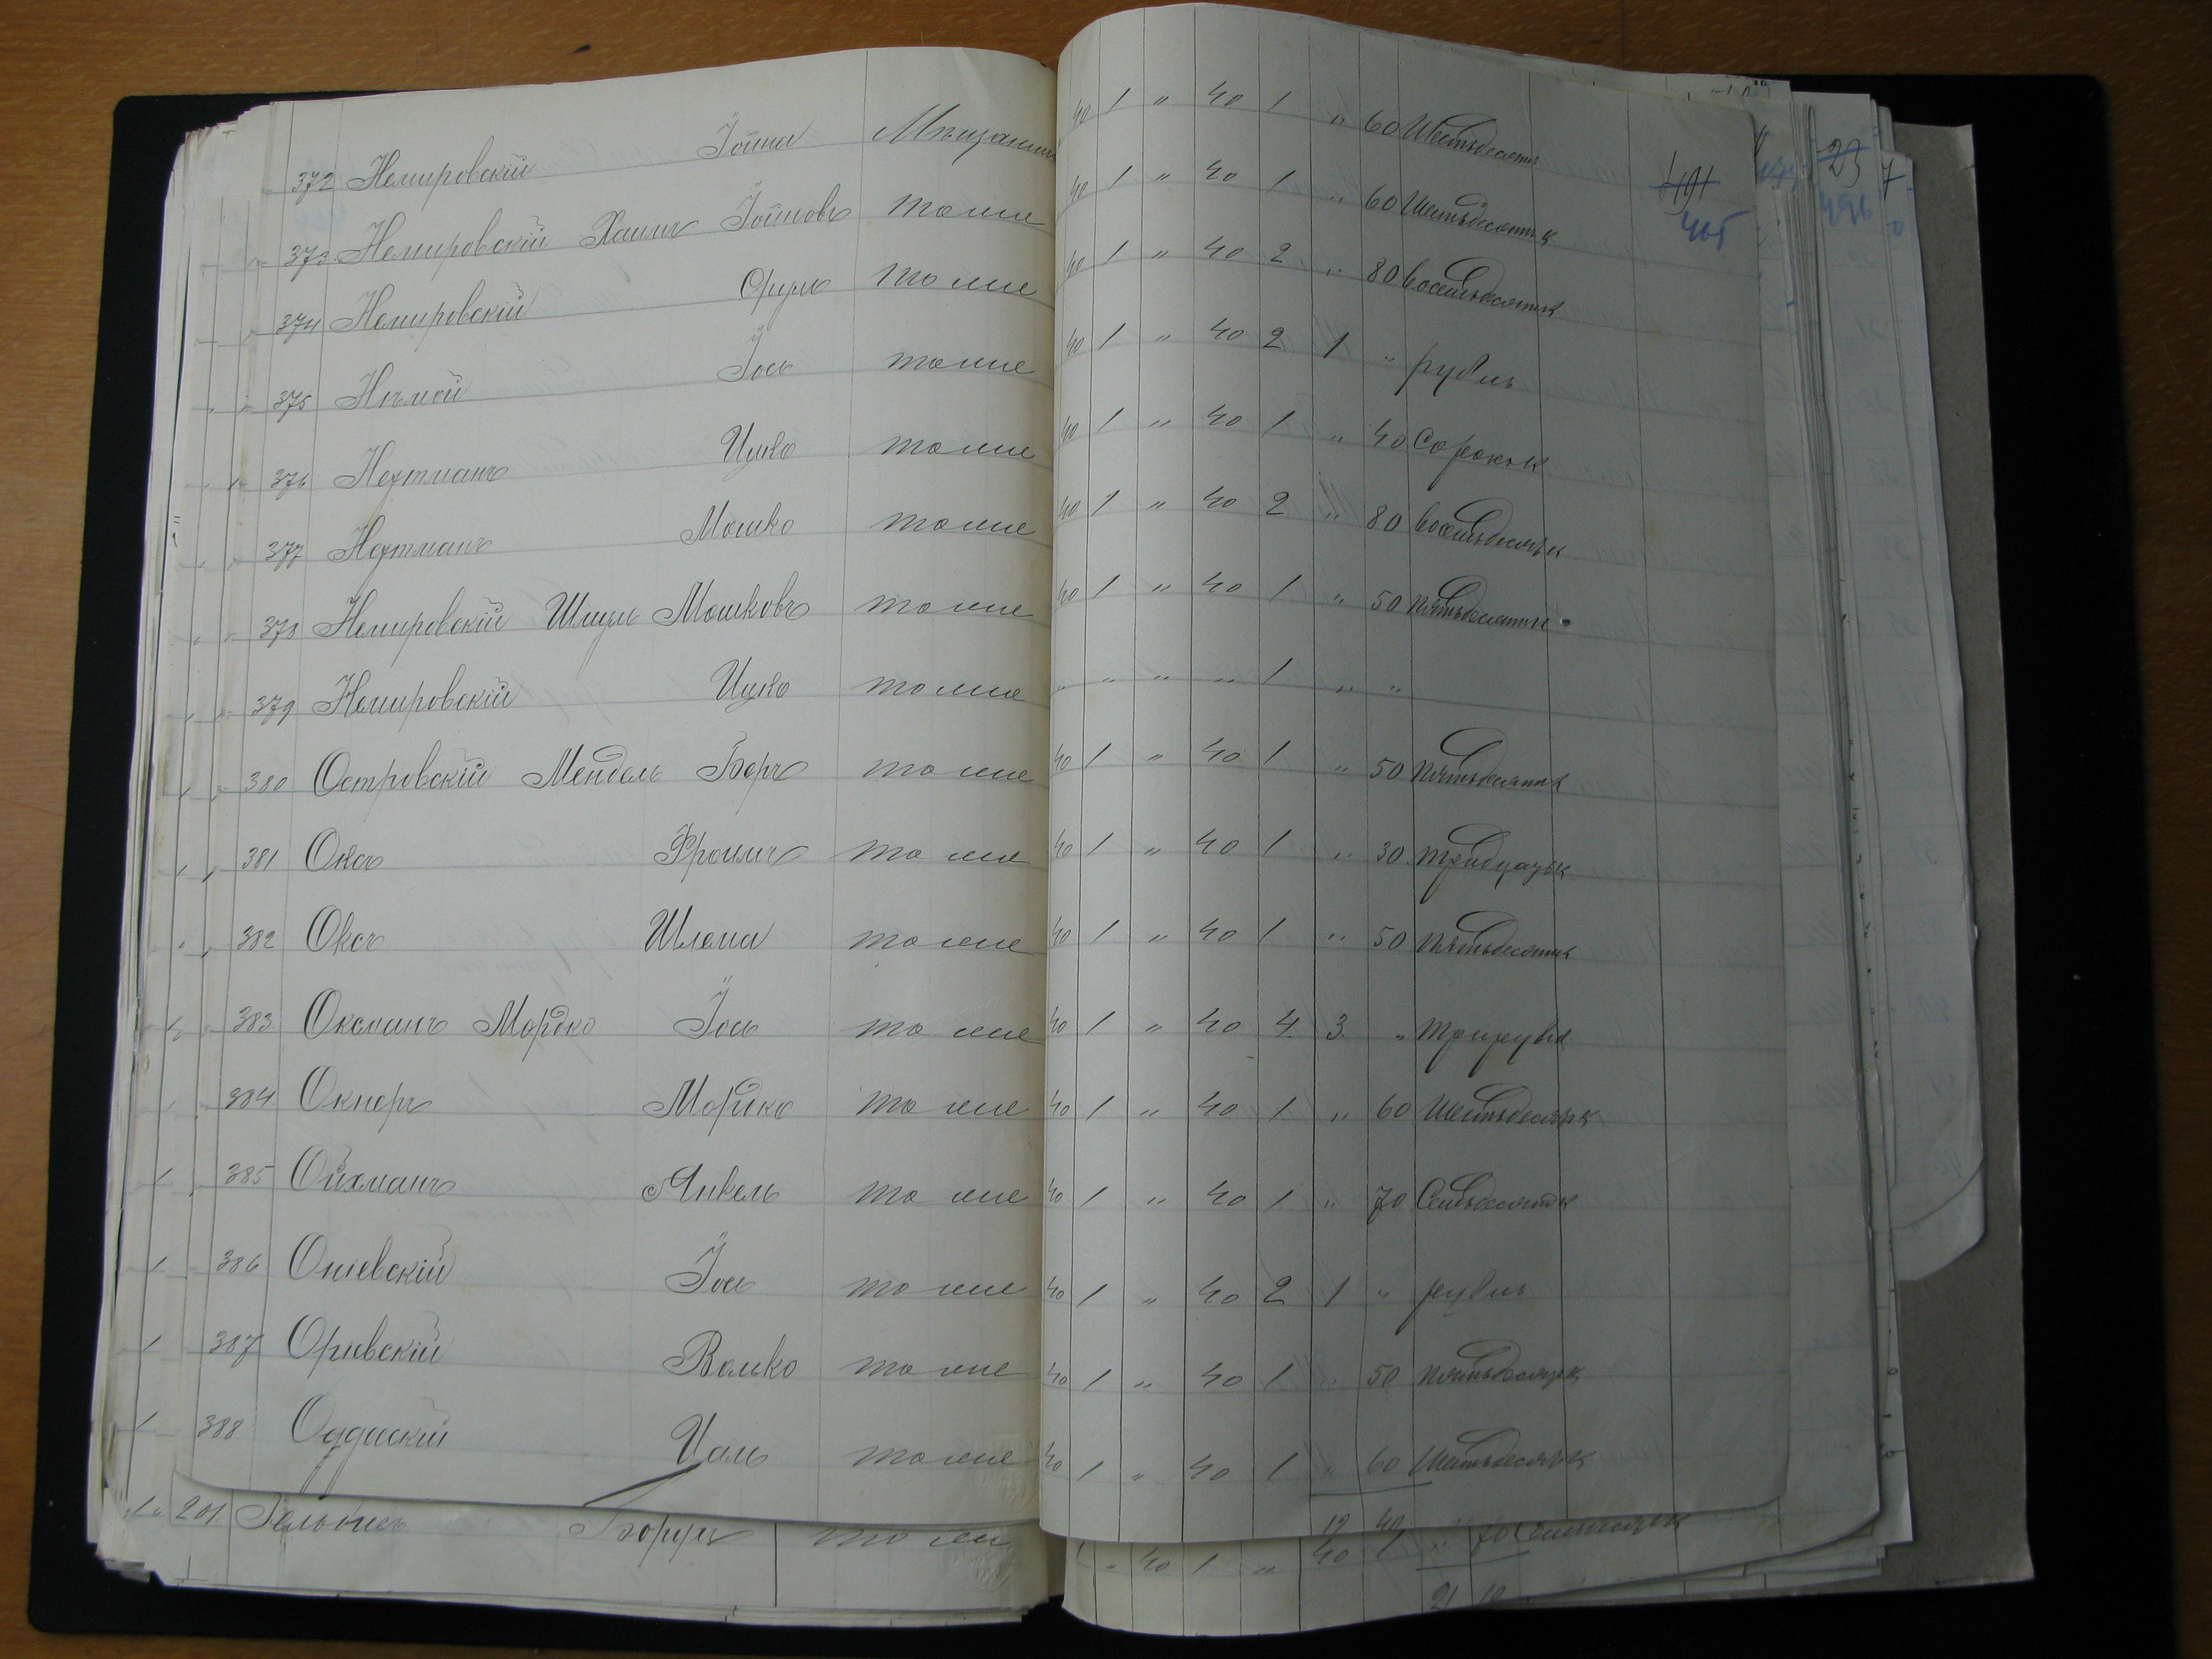 372 Немировскій Іойна Мѣщанинъ 40 1 " 40 1 " 60 Шестьдесятъ
491
405
23 7
373 Немировскій Хаимъ Іойновъ тоже 40 1 " 40 1 " 60 Шестьдесятъ к
374 Немировскій Сруль тоже 40 1 " 40 2 " 80 восемьдесятъ к
375 Нѣмой Іось тоже 40 1 " 40 2 1 " рубль
376 Нехтманъ Ицко тоже 40 1 " 40 1 " 40 Сорокъ к
377 Нехтманъ Мошко тоже 40 1 " 40 2 " 80 восемьдесятъ к
378 Немировскій Шмуль Мошковъ тоже 40 1 " 40 1 " 50 пятьдесятъ к
379 Немировскій Ицко тоже " " " " 1 " "
380 Островскій Мендель Беръ тоже 40 1 " 40 1 " 50 пятьдесятъ к
381 Оксъ Фроимъ тоже 40 1 " 40 1 " 30 тридцать к
382 Оксъ Шлема тоже 40 1 " 40 1 " 50 пятьдесятъ к
383 Оксманъ Мордко Іось тоже 40 1 " 40 4 3 " три рубл
384 Окнеръ Мордко тоже 40 1 " 40 1 " 60 Шестьдесятъ к
1 385 Ойхманъ Янкель тоже 40 1 " 40 1 " 70 Семьдесятъ к
1 386 Оніевскій Іось тоже 40 1 " 40 2 1 " рубль
1 387 Волько тоже 40 1 " 40 1 " 50 пятьдесятъ к
1 388 тоже 40 1 " 40 1 " 60 Шестьдесятъ к
12 40
1 201 Борухъ тоже " 40 1 " 40 1 " 70
21 10